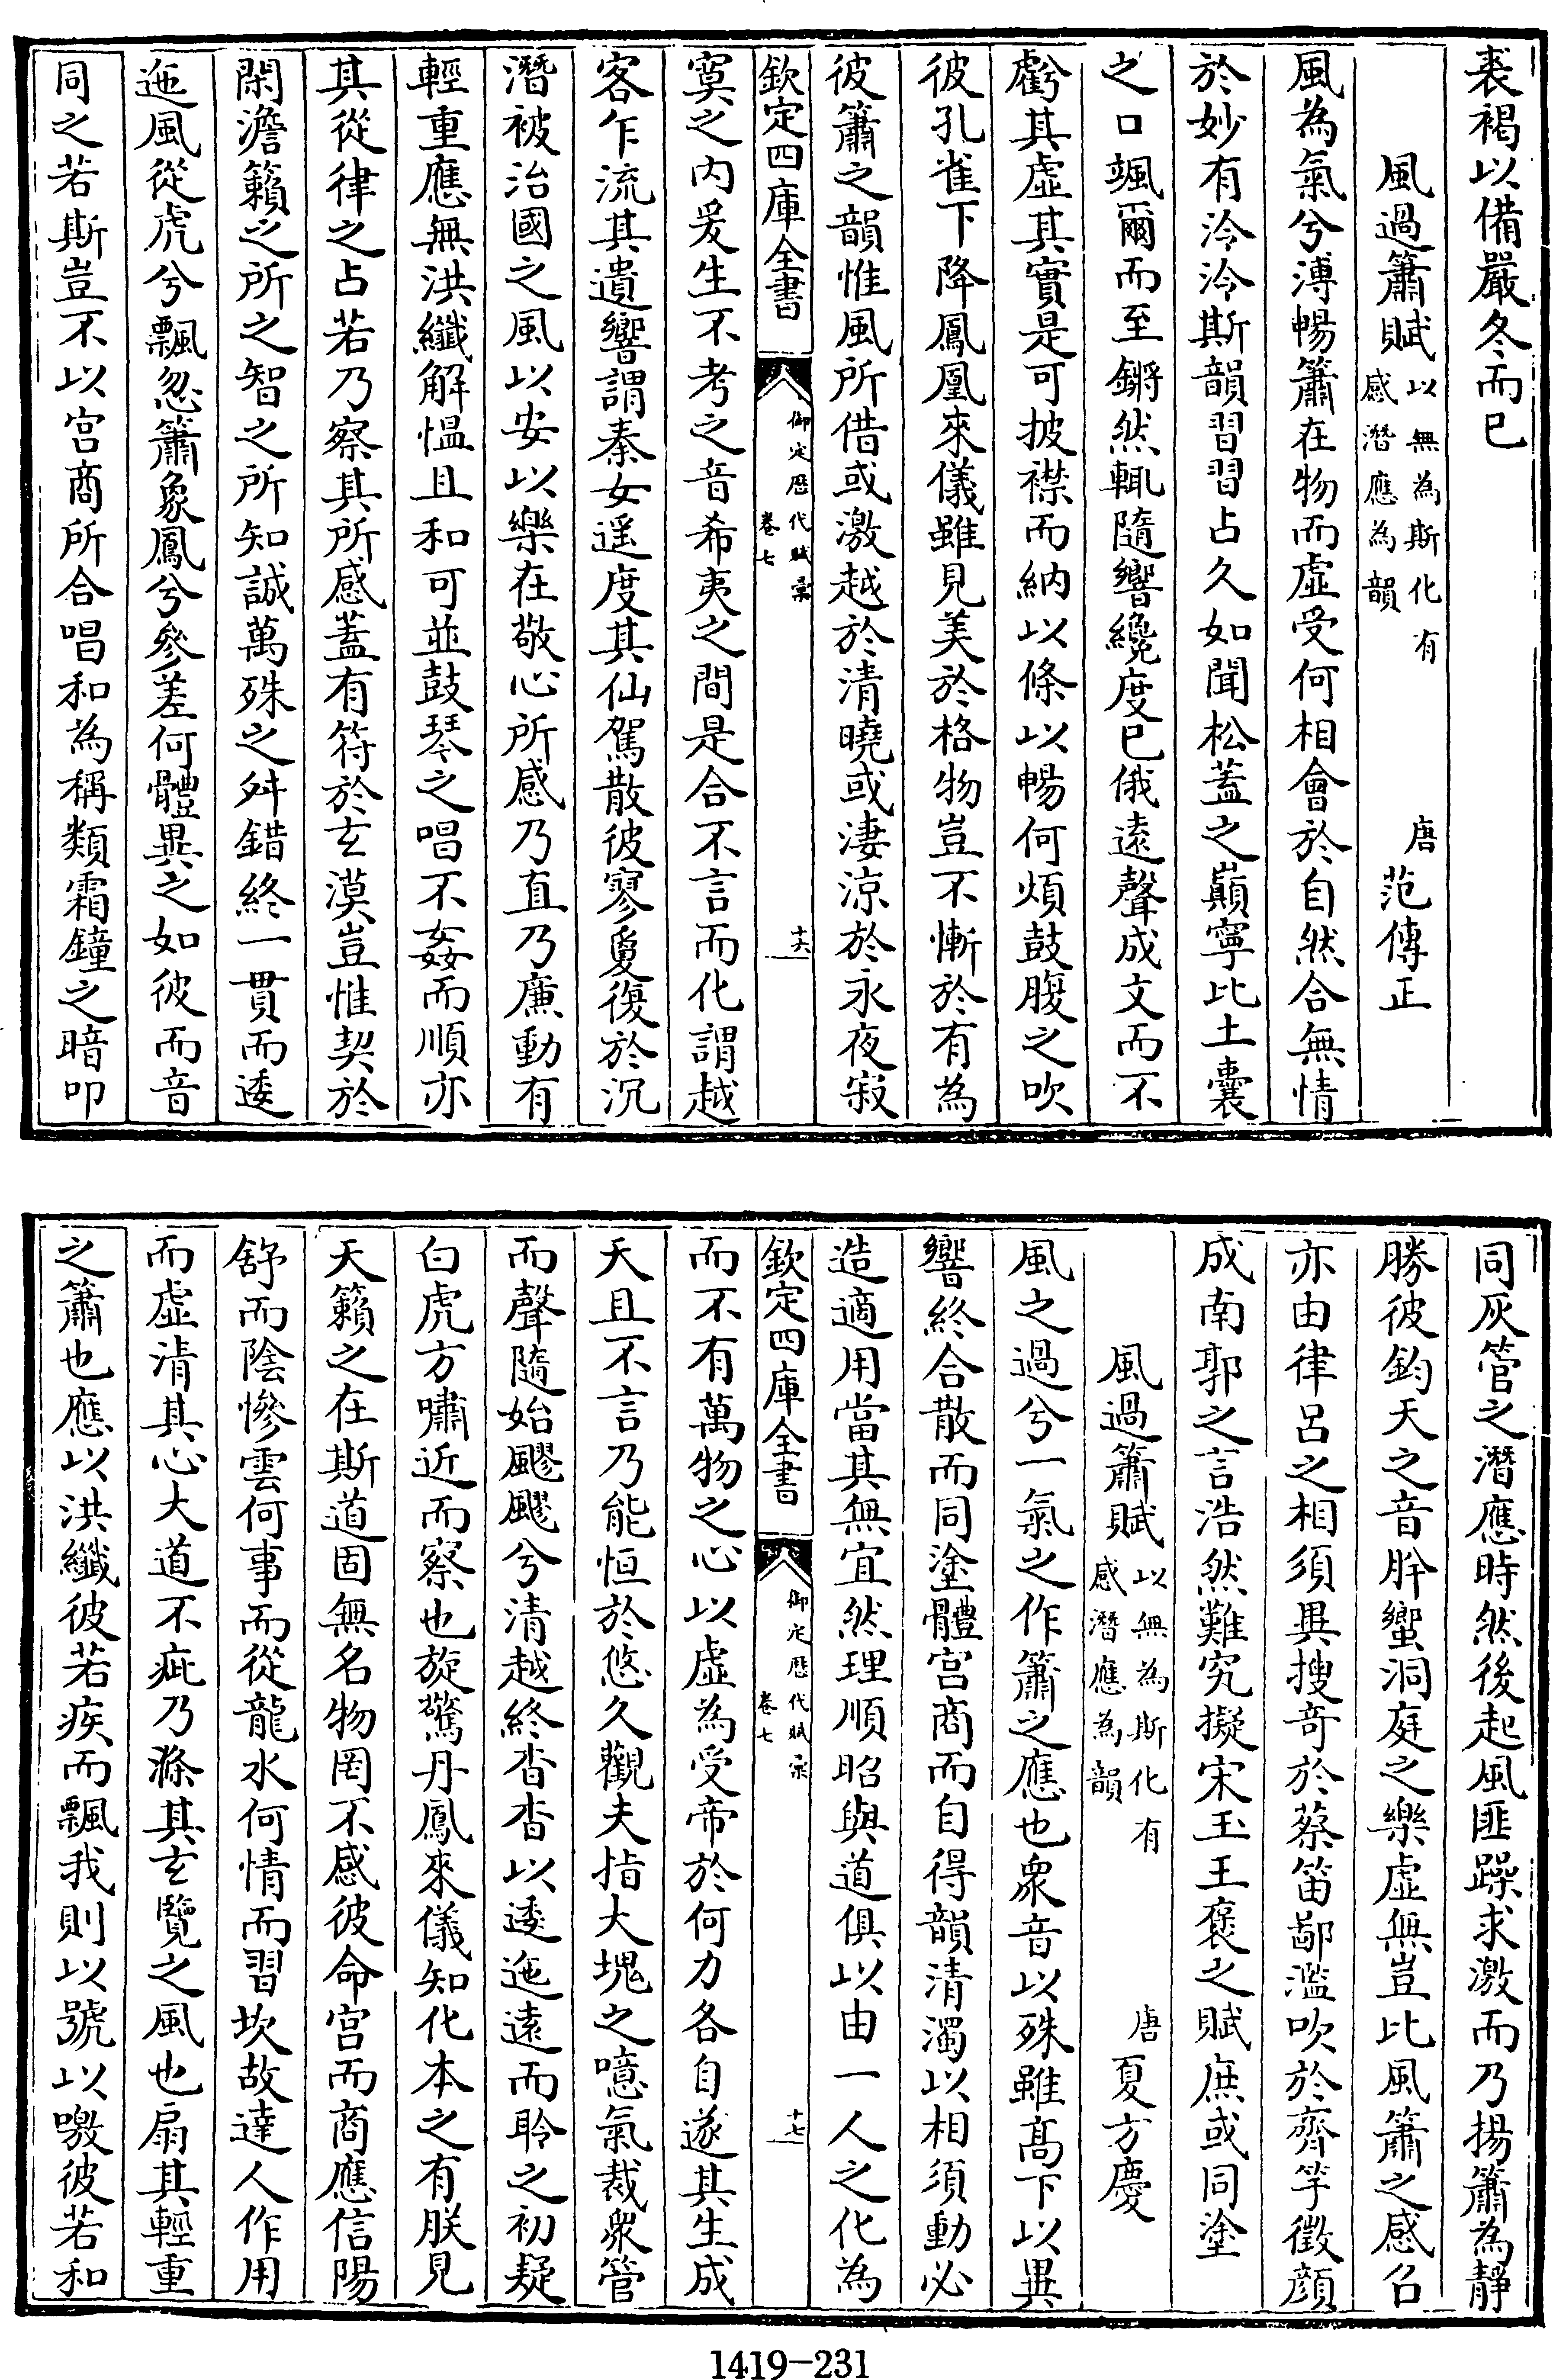 裘褐以備嚴冬而已
風過簫賦以無為斯化有感潛應為韻 唐范傳正
風為氣兮溥暢簫在物而虛受何相會於自然合無情
於妙有泠泠斯韻習習占久如聞松蓋之巔寧比土囊
之口颯爾而至鏘然輒隨響纔度已俄遠聲成文而不
虧其虛其實是可披襟而納以條以暢何煩鼓腹之吹
彼孔雀下降鳳凰來儀雖見美於格物豈不慚於有為
彼簫之韻惟風所借或激越於清曉或淒涼於永夜寂
欽定四庫全書 御定歷代賦彙 卷七 十六
寞之內爰生不考之音希夷之間是合不言而化謂越
客乍流其遺響謂秦女遥度其仙駕散彼寥夐復於沉
潛被治國之風以安以樂在敬心所感乃直乃廉動有
輕重應無洪纖解慍且和可並鼓琴之唱不姦而順亦
其從律之占若乃察其所感蓋有符於玄漠豈惟契於
閑澹籟之所之智之所知誠萬殊之舛錯終一貫而逶
迤風從虎兮飄忽簫象鳳兮參差何體異之如彼而音
同之若斯豈不以宫商所合唱和為稱類霜鐘之暗叩
同灰管之潛應時然後起風匪躁求激而乃揚簫為靜
勝彼鈞天之音肸蠁洞庭之樂虛無豈比風簫之感召
亦由律呂之相須異搜奇於蔡笛鄙濫吹於齊竽徵顔
成南郭之言浩然難究擬宋玉王褒之賦庶或同塗
風過簫賦以無為斯化有感潛應為韻 唐夏方慶
風之過兮一氣之作簫之應也衆音以殊雖髙下以異
響終合散而同塗體宫商而自得韻清濁以相須動必
造適用當其無宜然理順昭與道俱以由一人之化為
欽定四庫全書 御定歷代賦彙 卷七 十七
而不有萬物之心以虛為受帝於何力各自遂其生成
天且不言乃能恒於悠久觀夫指大塊之噫氣裁衆管
而聲隨始飂飂兮清越終杳杳以逶迤遠而聆之初疑
白虎方嘯近而察也旋驚丹鳳來儀知化本之有朕見
天籟之在斯道固無名物罔不感彼命宫而商應信陽
舒而陰慘雲何事而從龍水何情而習坎故達人作用
而虛清其心大道不疵乃滌其玄覽之風也扇其輕重
之簫也應以洪纖彼若疾而飄我則以號以噭彼若和
1419-231